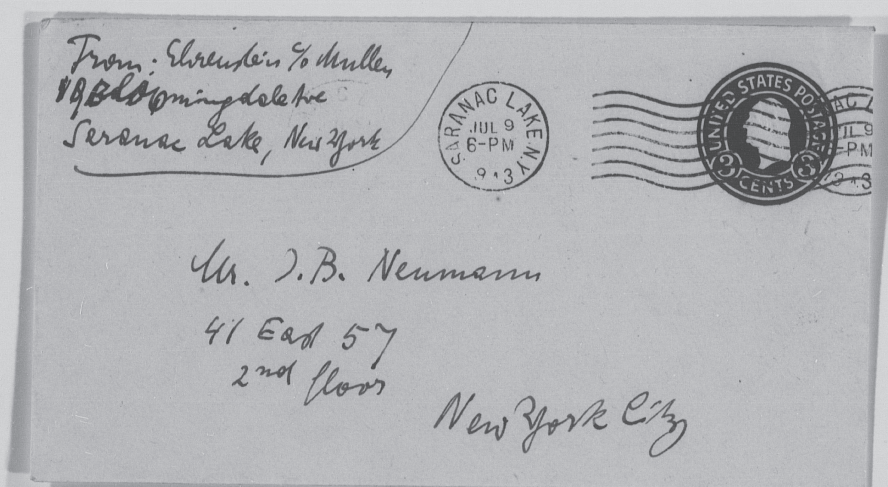 From: Ehrenstein c/o Mullen
19 Bloomingdale Ave
Saranac Lake, New York
SARANAC LAKE, N.Y.
JUL 9
6-PM
1943
UNITED STATES POSTAGE
3 CENTS 3
AC L
JUL 9
-PM
943
Mr. J. B. Neumann
41 East 57
2nd floor
New York City